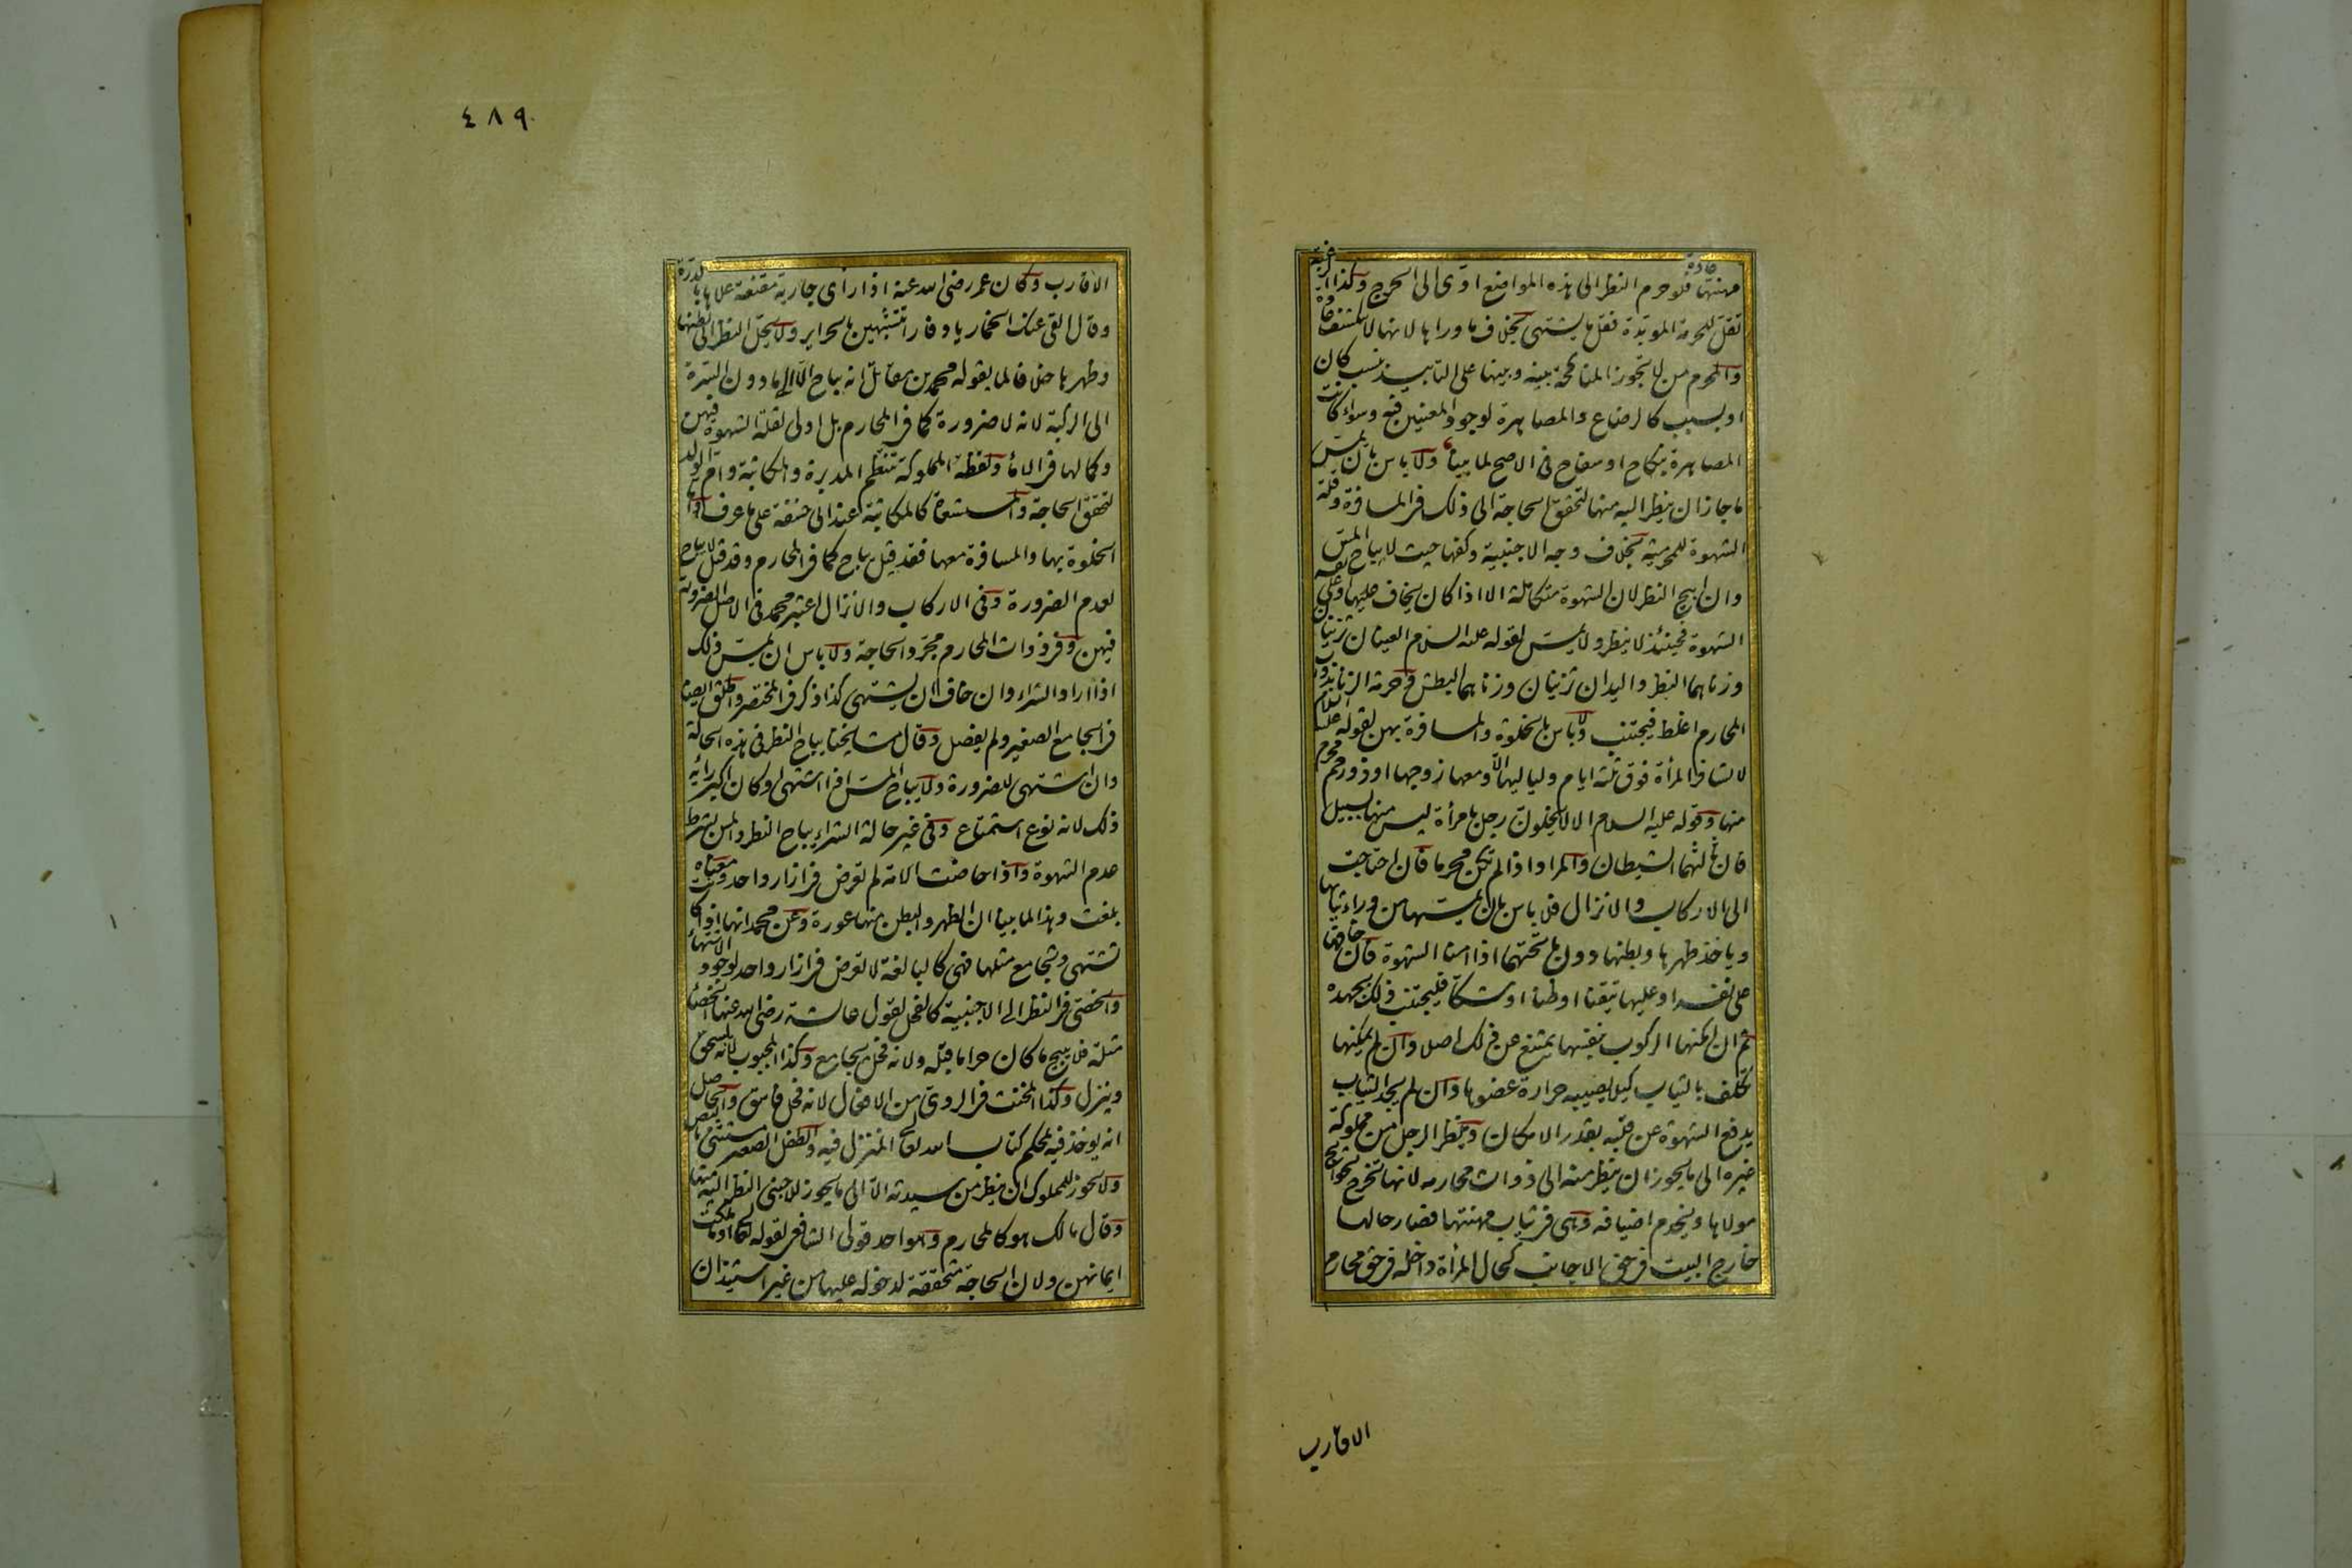 مهنتها عادة فلو حرم النظر الى هذه المواضع ادى الى الحرج وكذا الرغبة
تقل للحرمة الموبدة فقل ما يشتهى بخلاف ما وراها لانها لا تنكشف عادة
والمحرم من لا تجوز المناكحة بينه وبينها على التابيد بنسب كان
او بسبب كالرضاع والمصاهرة لوجود المعنيين فيه وسواء كانت
المصاهرة بنكاح او سفاح فى الاصح لما بينا ولا باس بان يمس
ما جاز ان ينظر اليه منها لتحقق الحاجة الى ذلك فى المسافرة وقلة
الشهوة للمحرمية بخلاف وجه الاجنبية وكفها حيث لا يباح المس
وان ابيح النظر لان الشهوة متكاملة الا اذا كان يخاف عليها او على نفسه
الشهوة فحينئذ لا ينظر ولا يمس لقوله عليه السلام العينان تزنيان
وزناهما النظر واليدان تزنيان وزناهما البطش وحرمة الزنا بذوات
المحارم اغلظ فيجتنب ولا باس بالخلوة والمسافرة بهن لقوله عليه السلام
لا تسافر المرأة فوق ثلثة ايام ولياليها الا ومعها زوجها او ذو رحم محرم
منها وقوله عليه السلام الا لا يخلون رجل بامرأة ليس منها بسبيل
فان ثالثهما الشيطان والمراد اذا لم يكن محرما فان احتاجت
الى الاركاب والانزال فلا باس بان يمسها من وراء ثيابها
وياخذ ظهرها وبطنها دون ما تحتهما اذا امنا الشهوة فان خافها
على نفسه او عليها تيقنا او ظنا او شكا فليجتنب ذلك بجهده
ثم ان امكنها الركوب بنفسها يمتنع عن ذلك اصلا وان لم يمكنها
تكلف بالثياب كيلا يصيبه حرارة عضوها وان لم يجد الثياب
يدفع الشهوة عن قلبه بقدر الامكان وينظر الرجل من مملوكة
غيره الى ما يجوز ان ينظر منه الى ذوات محارمه لانها تخرج لحوائج
مولاها وتخدم اضيافه وهى فى ثياب مهنتها فصار حالها
خارج البيت فى حق الاجانب كحال المرأة داخله فى حق محارم
الاقارب
٤٨٩
الاقارب وكان عمر رضى الله عنه اذا رأى جارية متقنعة علاها بالدرة
وقال القى عنك الخمار يا دفار اتتشبهين بالحراير ولا يحل النظر الى بطنها
وظهرها خلافا لما يقوله محمد بن مقاتل انه يباح الا الى ما دون السرة
الى الركبة لانه لا ضرورة كما فى المحارم بل اولى لقلة الشهوة فيهن
وكمالها فى الاماء ولفظة المملوكة تنتظم المدبرة والمكاتبة وام الولد
لتحقق الحاجة والمستسعاة كالمكاتبة عند ابى حنيفة على ما عرف واما
الخلوة بها والمسافرة معها فقد قيل يباح كما فى المحارم وقد قيل لا يباح
لعدم الضرورة وفى الاركاب والانزال اعتبر محمد فى الاصل الضرورة
فيهن وفى ذوات المحارم مجرد الحاجة ولا باس ان يمس ذلك
اذا اراد الشراء وان خاف ان يشتهى كذا ذكر فى المختصر واطلق ايضا
فى الجامع الصغير ولم يفصل وقال مشايخنا يباح النظر فى هذه الحالة
وان اشتهى للضرورة ولا يباح المس اذا اشتهى او كان اكبر رأيه
ذلك لانه نوع استمتاع وفى غير حالة الشراء يباح النظر والمس بشرط
عدم الشهوة واذا حاضت الامة لم تعرض فى ازار واحد ومعناه
بلغت وهذا لما بينا ان الظهر والبطن منها عورة وعن محمد انها اذا كانت
تشتهى ويجامع مثلها فهى كالبالغة لا تعرض فى ازار واحد لوجود الاشتهاء
والخصى فى النظر الى الاجنبية كالفحل لقول عائشة رضى الله عنها الخصاء
مثلة فلا يبيح ما كان حراما قبله ولانه فحل يجامع وكذا المجبوب لانه يسحق
وينزل وكذا المخنث فى الردى من الافعال لانه فحل فاسق والحاصل
انه يوخذ فيه بمحكم كتاب الله تعالى المنزل فيه والطفل الصغير مستثنى بالنص
ولا يجوز للمملوك ان ينظر من سيدته الا الى ما يجوز للاجنبى النظر اليه منها
وقال مالك هو كالمحارم وهو احد قولى الشافعى لقوله تعالى او ما ملكت
ايمانهن ولان الحاجة متحققة لدخوله عليها من غير استيذان